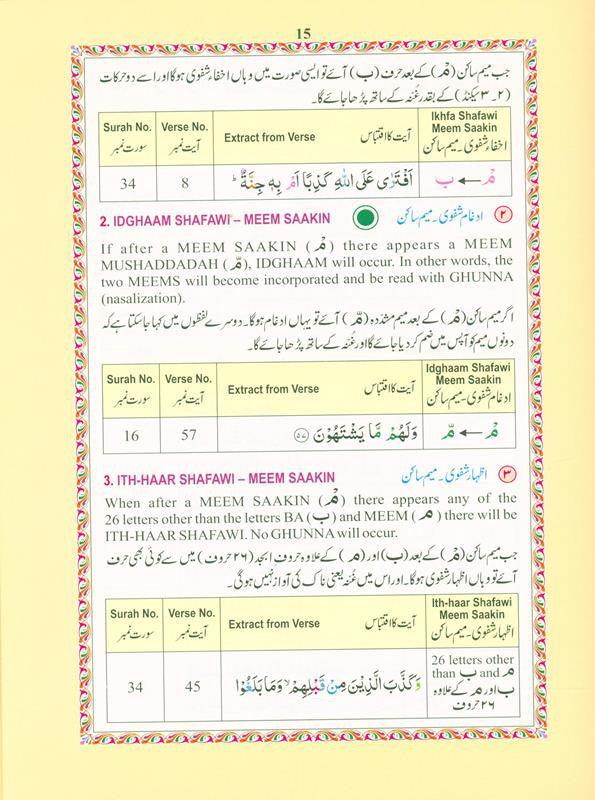 15
جب میم ساکن (مْ) کے بعد حرف (ب) آئے تو ایسی صورت میں وہاں اخفاء شفوی ہوگا اور اسے دو حرکات
(۲۔۳ سیکنڈ) کے بقدر غُنہ کے ساتھ پڑھا جائے گا۔
Surah No. Verse No. Extract from Verse آیت کا اقتباس Ikhfa Shafawi
Meem Saakin
سورت نمبر آیت نمبر اخفاء شفوی۔ میم ساکن
34 8 اَفْتَرٰى عَلَى اللّٰهِ كَذِبًا اَمْ بِهٖ جِنَّةٌ ؕ مْ ← ب
2. IDGHAAM SHAFAWI – MEEM SAAKIN ادغام شفوی۔ میم ساکن ۲
If after a MEEM SAAKIN (مْ) there appears a MEEM
MUSHADDADAH (مّ), IDGHAAM will occur. In other words, the
two MEEMS will become incorporated and be read with GHUNNA
(nasalization).
اگر میم ساکن (مْ) کے بعد میم مشدّدہ (مّ) آئے تو یہاں ادغام ہوگا۔ دوسرے لفظوں میں کہا جاسکتا ہے کہ
دونوں میم کو آپس میں ضم کر دیا جائے گا اور غنہ کے ساتھ پڑھا جائے گا۔
Surah No. Verse No. Extract from Verse آیت کا اقتباس Idghaam Shafawi
Meem Saakin
سورت نمبر آیت نمبر ادغام شفوی۔ میم ساکن
16 57 وَلَهُمْ مَّا يَشْتَهُوْنَ ۵۷ مْ ← مّ
3. ITH-HAAR SHAFAWI – MEEM SAAKIN اظہار شفوی۔ میم ساکن ۳
When after a MEEM SAAKIN (مْ) there appears any of the
26 letters other than the letters BA (ب) and MEEM (م) there will be
ITH-HAAR SHAFAWI. No GHUNNA will occur.
جب میم ساکن (مْ) کے بعد (ب) اور (م) کے علاوہ حروفِ ابجد (۲۶ حروف) میں سے کوئی بھی حرف
آئے تو وہاں اظہار شفوی ہوگا۔ اور اس میں غُنہ یعنی ناک کی آواز نہیں ہوگی۔
Surah No. Verse No. Extract from Verse آیت کا اقتباس Ith-haar Shafawi
Meem Saakin
سورت نمبر آیت نمبر اظہار شفوی۔ میم ساکن
26 letters other
than ب and م
34 45 وَكَذَّبَ الَّذِيْنَ مِنْ قَبْلِهِمْ ۙ وَمَا بَلَغُوْا ب اور م کے علاوہ
۲۶ حروف